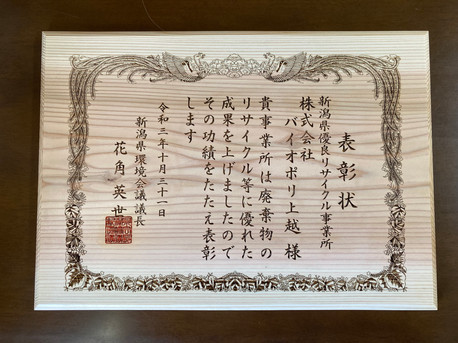 表彰状
新潟県優良リサイクル事業所
株式会社
バイオポリ上越 様
貴事業所は廃棄物の
リサイクル等に優れた
成果を上げましたので
その功績をたたえ表彰
します
令和三年十月三十一日
新潟県環境会議議長
花角 英世